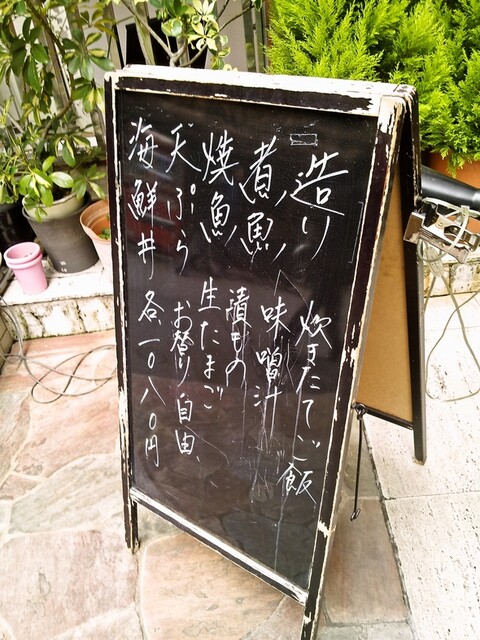 造り
煮魚
焼魚
天ぷら
海鮮丼
炊きたてご飯
味噌汁
漬もの
生たまご
お替り自由
各、一〇八〇円